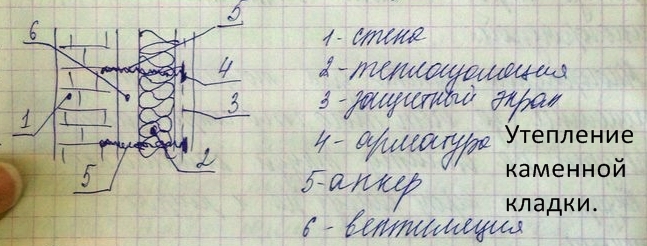 6
5
1
4
3
5
2
1 - стена
2 - теплоизоляция
3 - защитный экран
4 - арматура
5 - анкер
6 - вентиляция
Утепление
каменной
кладки.